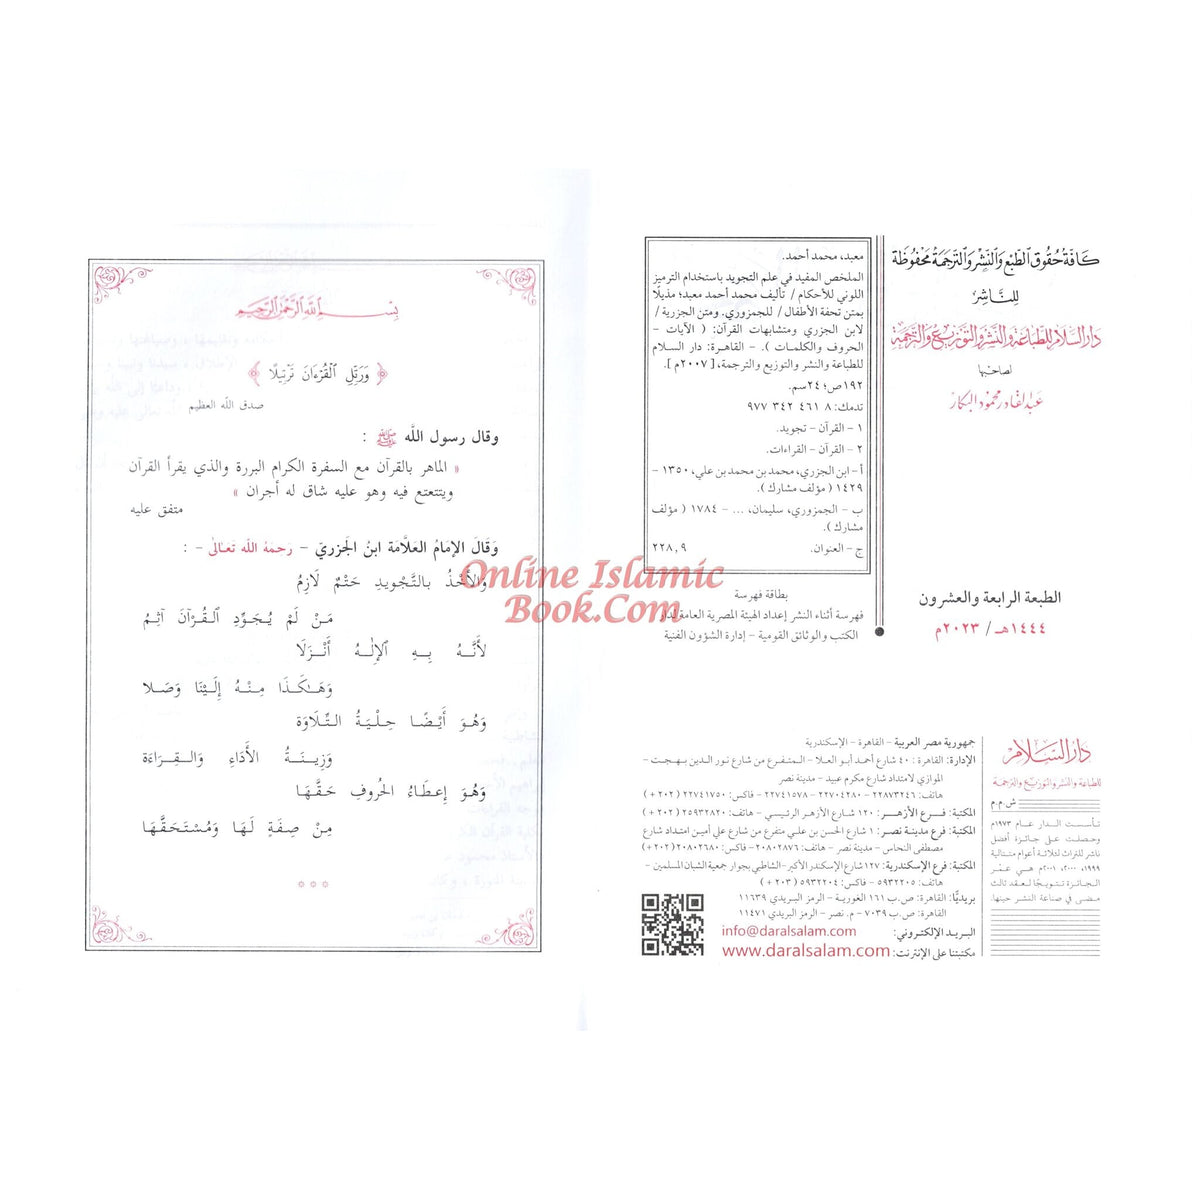 كافة حقوق الطبع والنشر والترجمة محفوظة
للناشر
دار السلام للطباعة والنشر والتوزيع والترجمة
لصاحبها
عبد القادر محمود البكار
الطبعة الرابعة والعشرون
١٤٤٤هـ / ٢٠٢٣م
معبد، محمد أحمد.
الملخص المفيد في علم التجويد باستخدام الترميز
اللوني للأحكام / تأليف محمد أحمد معبد؛ مذيلًا
بمتن تحفة الأطفال / للجمزوري. ومتن الجزرية /
لابن الجزري ومتشابهات القرآن: ( الآيات -
الحروف والكلمات ). - القاهرة: دار السلام
للطباعة والنشر والتوزيع والترجمة، [ ٢٠٠٧م ].
١٩٢ص؛ ٢٤سم.
تدمك: ٨ ٤٦١ ٣٤٢ ٩٧٧
١ - القرآن - تجويد.
٢ - القرآن - القراءات.
أ - ابن الجزري، محمد بن محمد بن علي، ١٣٥٠ -
١٤٢٩ ( مؤلف مشارك ).
ب - الجمزوري، سليمان، ... - ١٧٨٤ ( مؤلف
مشارك ).
ج - العنوان. ٢٢٨,٩
بطاقة فهرسة
فهرسة أثناء النشر إعداد الهيئة المصرية العامة لدار
الكتب والوثائق القومية - إدارة الشؤون الفنية
دار السلام
للطباعة والنشر والتوزيع والترجمة
ش.م.م
تأسست الدار عام ١٩٧٣م
وحصلت على جائزة أفضل
ناشر للتراث لثلاثة أعوام متتالية
١٩٩٩، ٢٠٠٠، ٢٠٠١م هي عشر
الجائزة تتويجًا لعقد ثالث
مضى في صناعة النشر حينها.
جمهورية مصر العربية - القاهرة - الإسكندرية
الإدارة: القاهرة : ٤٠ شارع أحمد أبو العلا - المتفرع من شارع نور الدين بهجت -
الموازي لامتداد شارع مكرم عبيد - مدينة نصر
هاتف: ٢٢٨٧٣٢٤٦ - ٢٢٧٠٤٢٨٠ - ٢٢٧٤١٥٧٨ - فاكس: ٢٢٧٤١٧٥٠ (٢٠٢ +)
المكتبة: فرع الأزهر : ١٢٠ شارع الأزهر الرئيسي - هاتف: ٢٥٩٣٢٨٢٠ (٢٠٢ +)
المكتبة: فرع مدينة نصر : ١ شارع الحسن بن علي متفرع من شارع علي أمين امتداد شارع
مصطفى النحاس - مدينة نصر - هاتف: ٢٠٨٠٢٨٧٦ - فاكس: ٢٠٨٠٢٦٨٠ (٢٠٢ +)
المكتبة: فرع الإسكندرية: ١٢٧ شارع الإسكندر الأكبر - الشاطبي بجوار جمعية الشبان المسلمين -
هاتف: ٥٩٣٢٢٠٥ - فاكس: ٥٩٣٢٢٠٤ (٢٠٣ +)
بريديًا: القاهرة: ص.ب ١٦١ الغورية - الرمز البريدي ١١٦٣٩
القاهرة: ص.ب ٧٠٣٩ - م. نصر - الرمز البريدي ١١٤٧١
البريد الإلكتروني: info@daralsalam.com
مكتبتنا على الإنترنت: www.daralsalam.com
بسم الله الرحمن الرحيم
﴿ وَرَتِّلِ ٱلْقُرْءَانَ تَرْتِيلًا ﴾
صدق الله العظيم
وقال رسول الله ﷺ :
« الماهر بالقرآن مع السفرة الكرام البررة والذي يقرأ القرآن
ويتتعتع فيه وهو عليه شاق له أجران »
متفق عليه
وَقَالَ الإمَامُ العَلَّامَة ابنُ الجَزريّ - رحمَهُ الله تعَالى - :
وَالأَخْذُ بالتَّجْويدِ حَتْمٌ لَازِمُ
مَنْ لَمْ يُجَوِّدِ القُرْآنَ آثِمُ
لأَنَّهُ بِهِ الإلٰهُ أَنْزَلَا
وَهٰكَذَا مِنْهُ إلَيْنَا وَصَلا
وَهُوَ أَيْضًا حِلْيَةُ التِّلَاوَة
وَزِينَةُ الأَدَاءِ وَالقِرَاءَة
وَهُوَ إعْطَاءُ الحُروفِ حَقَّهَا
مِنْ صِفَةٍ لَهَا وَمُسْتَحَقَّهَا
* * *
Online Islamic
Book.Com